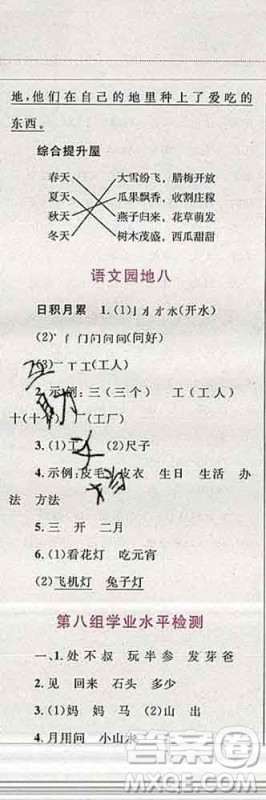 地,他们在自己的地里种上了爱吃的
东西。
综合提升屋
春天 大雪纷飞,腊梅开放
夏天 瓜果飘香,收割庄稼
秋天 燕子归来,花草萌发
冬天 树木茂盛,西瓜甜甜
语文园地八
日积月累 1.(1)亅 水(开水)
(2)丶 门 问(问好)
(3)一 丅 工(工人)
示例:三(三个) 工(工人)
十(十 ) 厂(工厂)
3.(1)工 (2)尺子
4.示例:皮毛 皮衣 生日 生活 办
法 方法
5.三 开 二月
6.(1)看花灯 吃元宵
(2)飞机灯 兔子灯
第八组学业水平检测
一、1.处不叔 玩半参 发芽爸
2.见 回来 石头 多少
3.(1)妈 妈 马 (2)山 出
4.月用问 小山水
答案圈